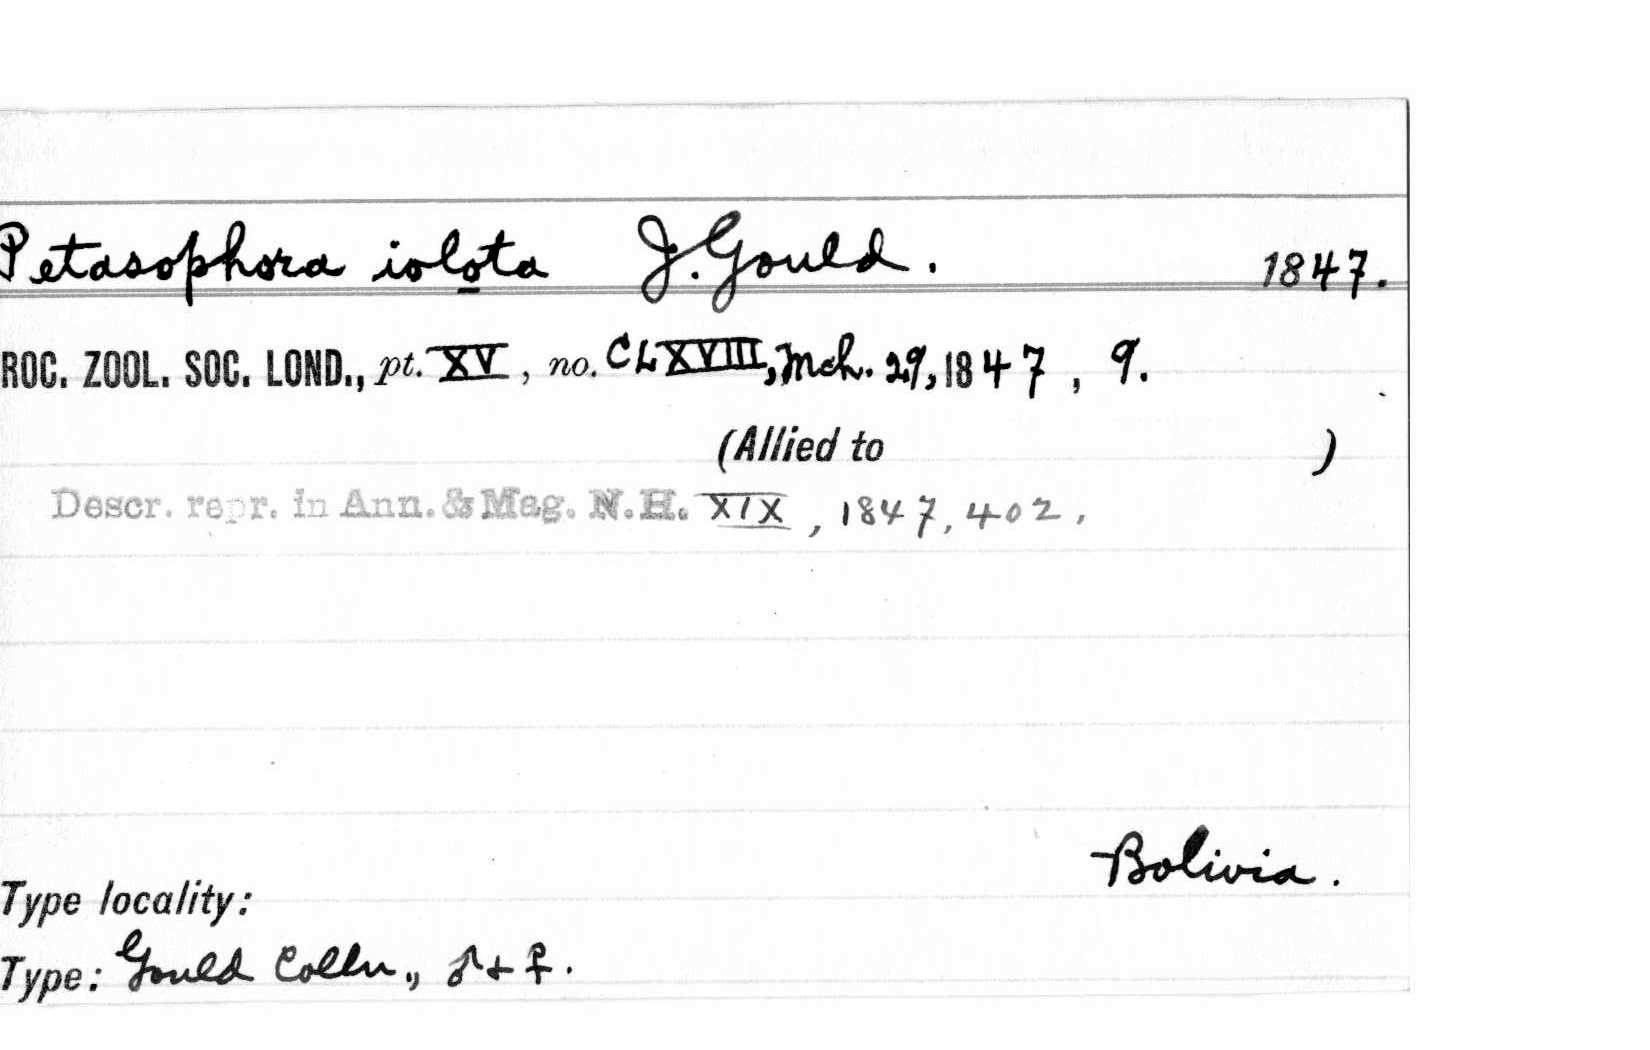 Petasophora iolota J. Gould. 1847.
ROC. ZOOL. SOC. LOND., pt. XV, no. CLXVIII, Mch. 29, 1847, 9.
(Allied to )
Descr. repr. in Ann. & Mag. N.H. XIX, 1847, 402.
Bolivia.
Type locality:
Type: Gould Colln., ♂ + ♀.